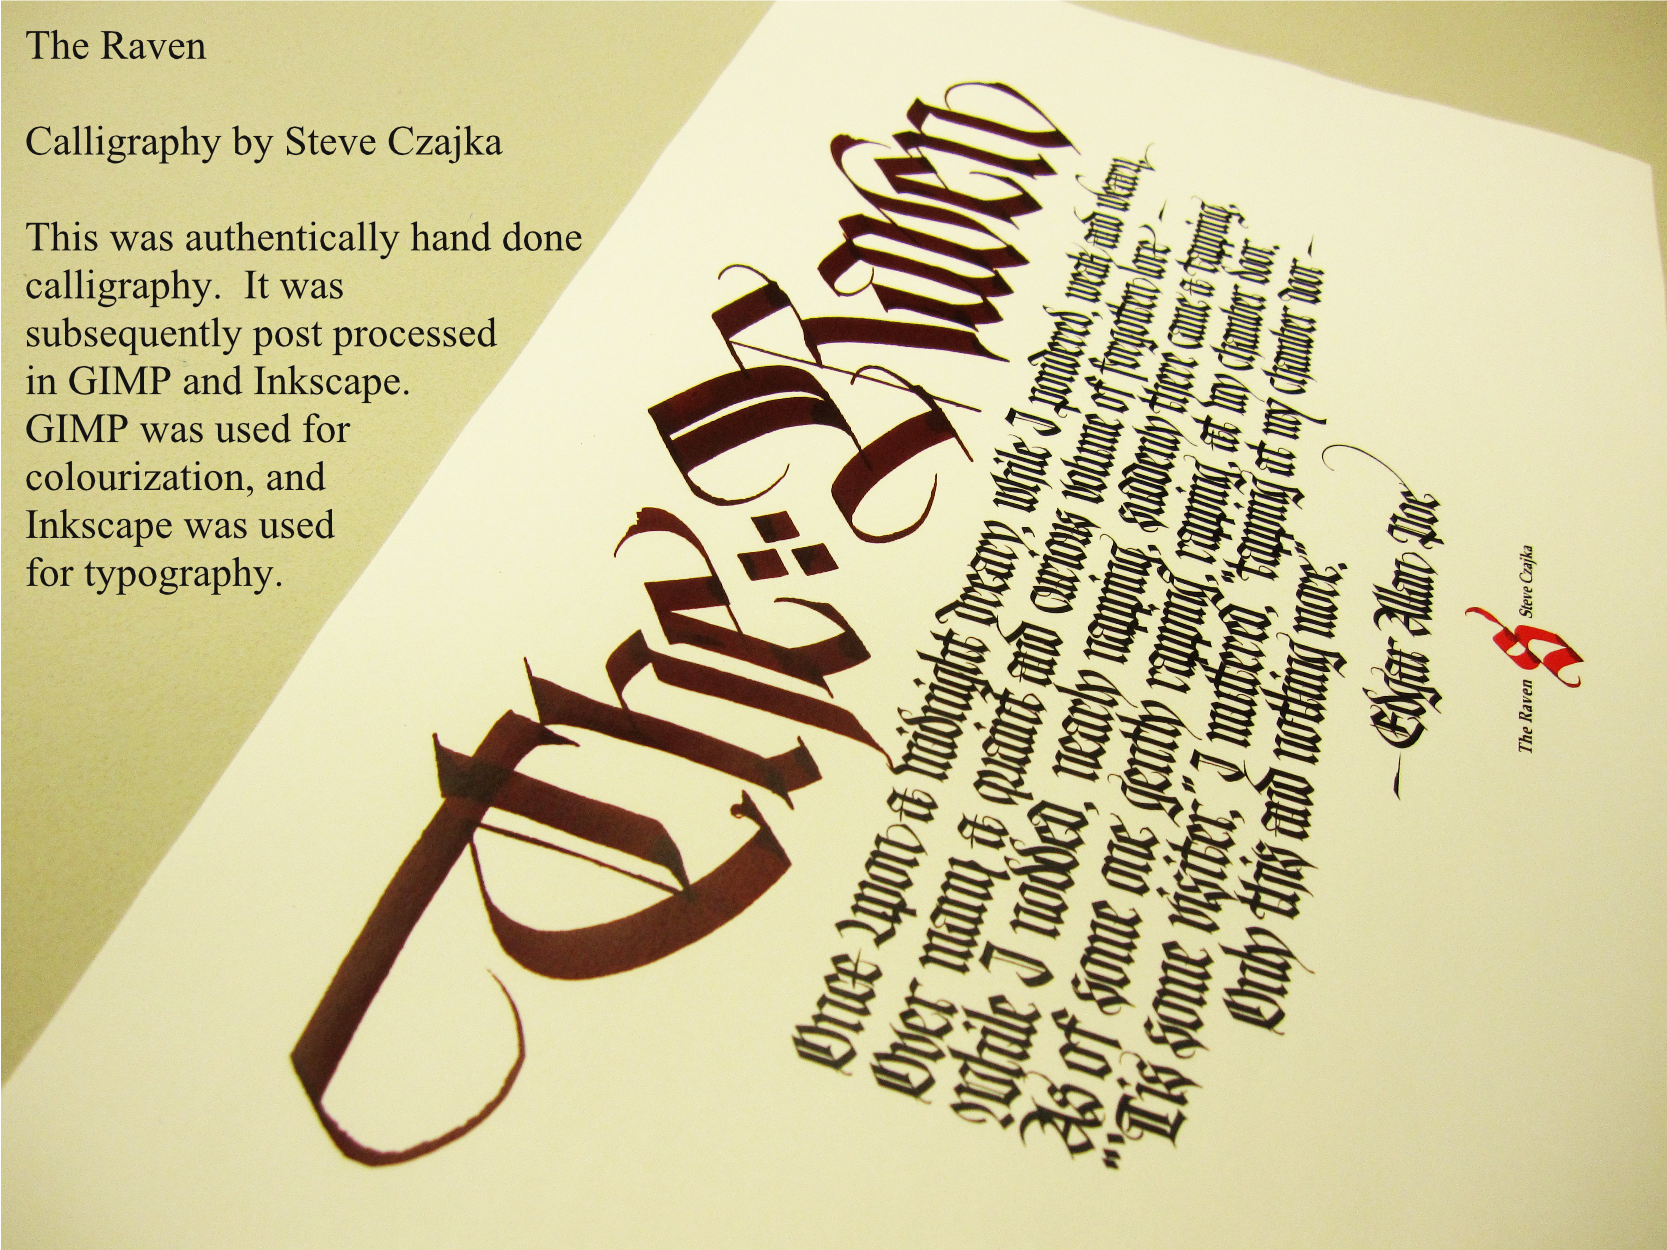 The Raven
Calligraphy by Steve Czajka
This was authentically hand done
calligraphy.  It was
subsequently post processed
in GIMP and Inkscape.
GIMP was used for
colourization, and
Inkscape was used
for typography.
The Raven
Once upon a midnight dreary, while I pondered, weak and weary,
Over many a quaint and curious volume of forgotten lore —
While I nodded, nearly napping, suddenly there came a tapping,
As of some one gently rapping, rapping at my chamber door.
"'Tis some visiter," I muttered, "tapping at my chamber door —
Only this and nothing more."
—Edgar Allan Poe
The Raven Steve Czajka